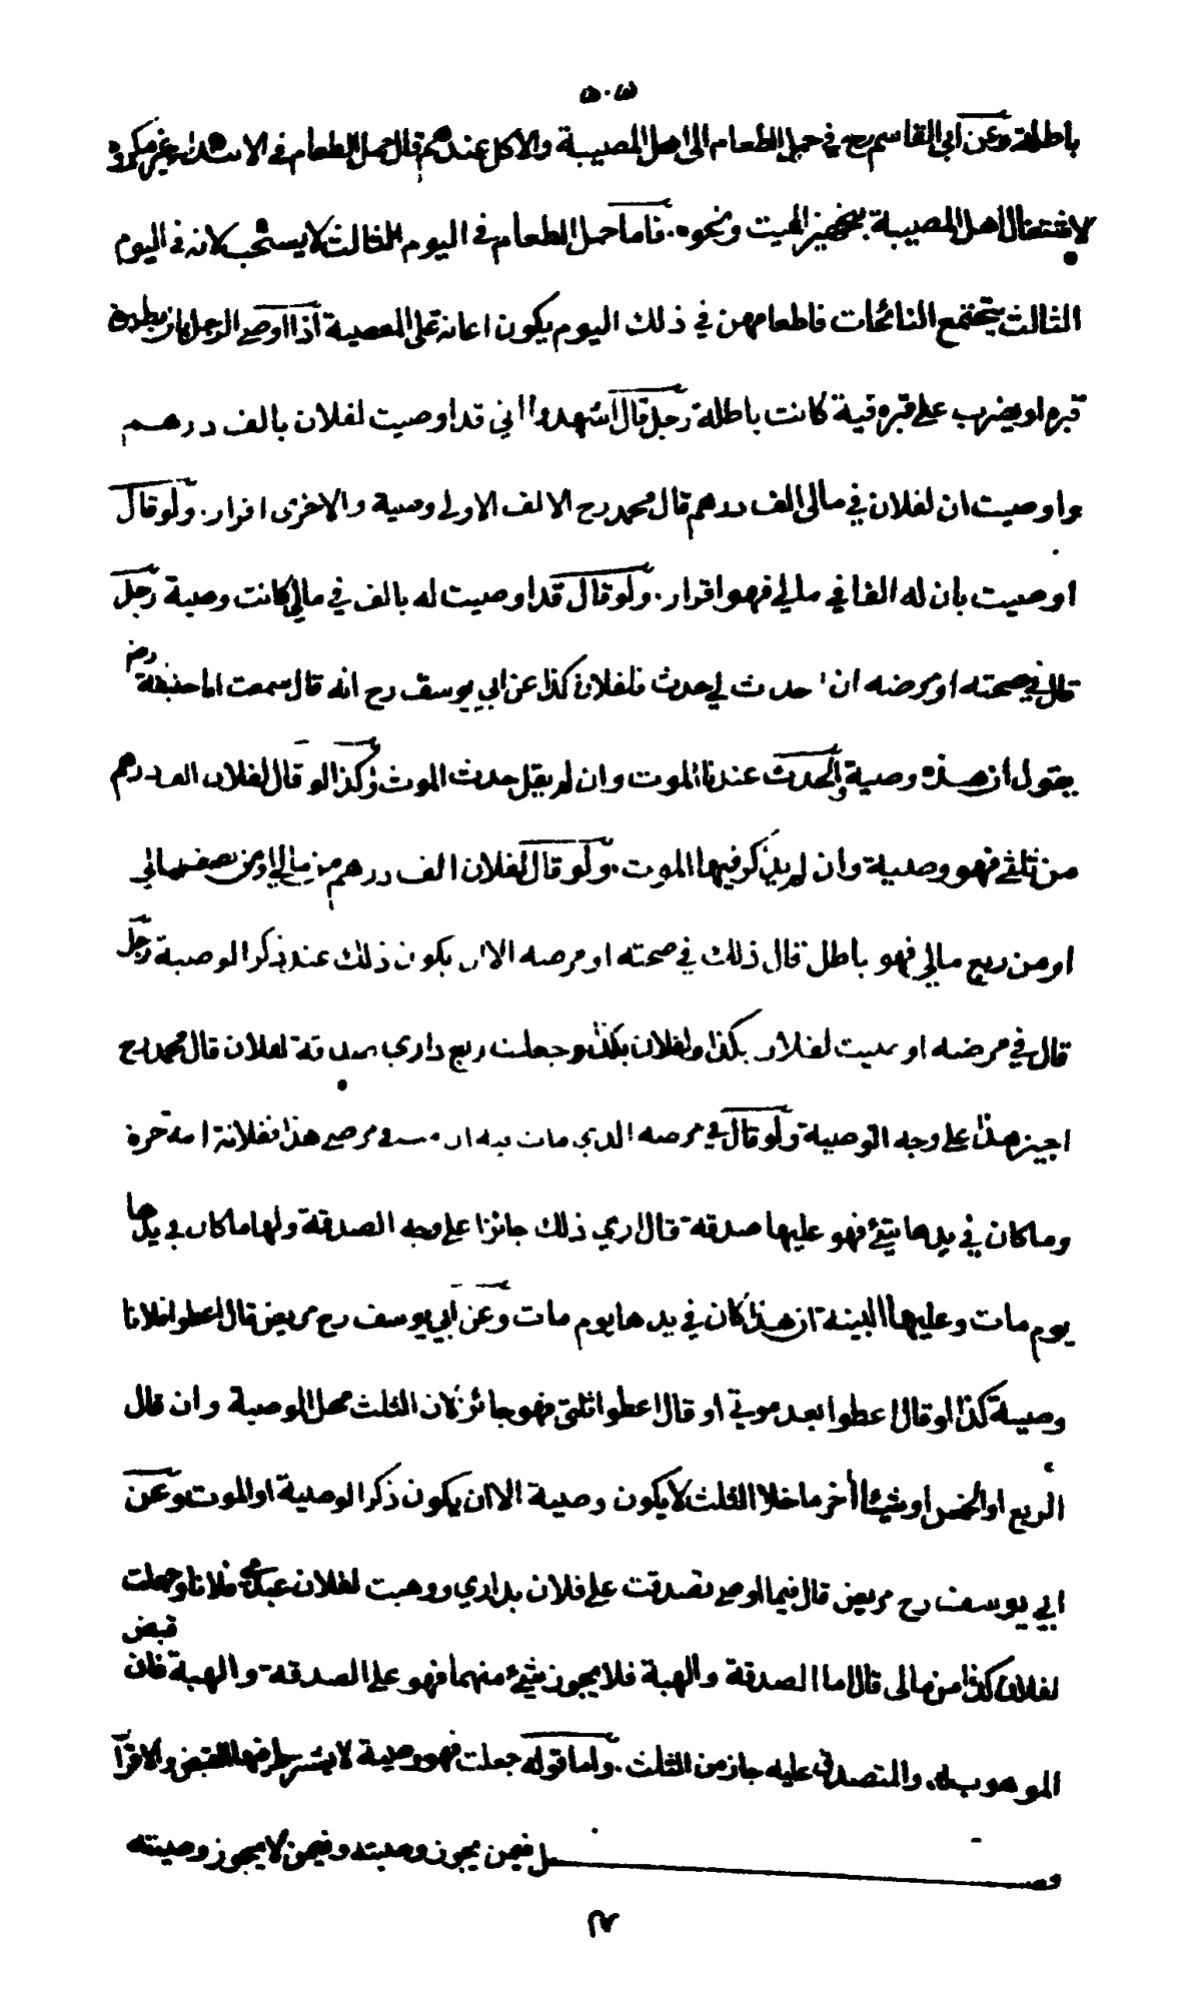 ٥٠٣
باطلة وعن ابي القاسم رح في حمل الطعام الى اهل المصيبة والاكل عندهم قال حمل الطعام في الابتداء غير مكروه
لاشتغال اهل المصيبة بتجهيز الميت ونحوه. فاما حمل الطعام في اليوم الثالث لا يستحب لانه في اليوم
الثالث يجتمع النائحات فاطعامهن في ذلك اليوم يكون اعانة على المعصية اذا اوصى الرجل بان يطين
قبره او يضرب على قبره قبة كانت باطلة رجل قال اشهدوا اني قد اوصيت لفلان بالف درهم
واوصيت ان لفلان في مالي الف درهم قال محمد رح الالف الاولى وصية والاخرى اقرار. ولو قال
اوصيت بان له الفا في مالي فهو اقرار. ولو قال قد اوصيت له بالف في مالي كانت وصية رجل
قال في صحته او مرضه ان حدث لي حدث فلفلان كذا عن ابي يوسف رح انه قال سمعت ابا حنيفة رض
يقول ان هذه وصية والحدث عندنا الموت وان لم يقل حدث الموت وكذا لو قال لفلان الف درهم
من ثلثي فهو وصية وان لم يذكر فيها الموت. ولو قال لفلان الف درهم من مالي او من نصف مالي
او من ربع مالي فهو باطل قال ذلك في صحته او مرضه الا ان يكون ذلك عند ذكر الوصية رجل
قال في مرضه اوصيت لفلان بكذا ولفلان بكذا وجعلت ربع داري صدقة لفلان قال محمد رح
اجيز هذا على وجه الوصية ولو قال في مرضه الذي مات فيه ان مت في مرضي هذا ففلانة امة حرة
وما كان في يدها شئ فهو عليها صدقة قال ارى ذلك جائزا على وجه الصدقة ولها ما كان في يدها
يوم مات وعليها البينة ان هذا كان في يدها يوم مات وعن ابي يوسف رح مريض قال اعطوا فلانا
وصية كذا او قال اعطوا بعد موتي او قال اعطوا ثلثي فهو جائز لان الثلث محل الوصية وان قال
الربع او الخمس او شيئا اخر ما خلا الثلث لا يكون وصية الا ان يكون ذكر الوصية او الموت وعن
ابي يوسف رح مريض قال فيما اوصى تصدقت على فلان بداري ووهبت لفلان عبدي فلانا وجعلت
لفلان كذا من مالي قال اما الصدقة والهبة فلا يجوز شئ منهما فهو على الصدقة والهبة فان قبض
الموهوب له. والمتصدق عليه جاز من الثلث. واما قوله جعلت فهو وصية لا يشترط فيها القبض والاقرا
فصـل فيمن يجوز وصيته وفيمن لا يجوز وصيته